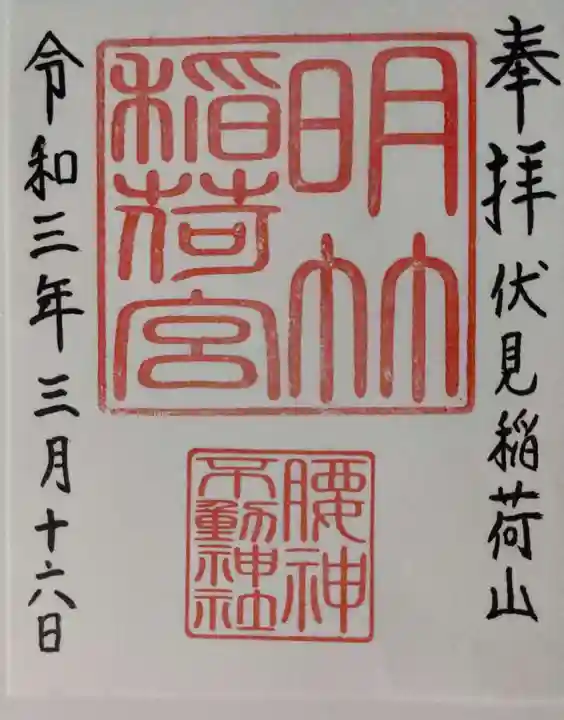 奉拝 伏見稲荷山
明竹
稲荷宮
腰神
不動神社
令和三年三月十六日